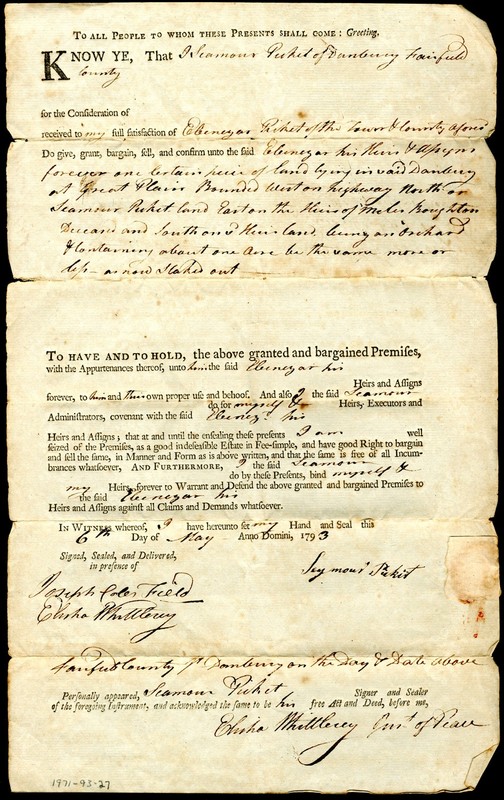 TO ALL PEOPLE TO WHOM THESE PRESENTS SHALL COME: Greeting,
KNOW YE, That I Seamour Picket of Danbury Fairfield
County
for the Consideration of
received to my full satisfaction of Ebenezar Picket of the Town & County afores'd
Do give, grant, bargain, sell, and confirm unto the said Ebenezar his Heirs & Assigns
forever one certain piece of land lying in said Danbury
at Great Plain Bounded West on highway North on
Seamour Picket land East on the Heirs of Boughton
Deceasd and South on Heirs land being an Orchard
& Containing about one Acre be the same more or
less - as now Staked out
TO HAVE AND TO HOLD, the above granted and bargained Premises,
with the Appurtenances thereof, unto him the said Ebenezar his
Heirs and Assigns
forever, to him and their own proper use and behoof. And also I the said Seamour
do for myself & Heirs, Executors and
Administrators, covenant with the said Ebenezr his
Heirs and Assigns; that at and until the ensealing these presents I am well
seized of the Premises, as a good indefeasible Estate in Fee-simple, and have good Right to bargain
and sell the same, in Manner and Form as is above written, and that the same is free of all Incum-
brances whatsoever, AND FURTHERMORE, I the said Seamour
do by these Presents, bind myself &
my Heirs, forever to Warrant and Defend the above granted and bargained Premises to
the said Ebenezar his
Heirs and Assigns against all Claims and Demands whatsoever.
IN WITNESS whereof, I have hereunto set my Hand and Seal this
6th Day of May Anno Domini, 1793
Signed, Sealed, and Delivered,
in presence of
Seymour Picket
Joseph Coles Field
Elisha Whittlecey
Fairfield County Danbury on the Day & Date above
Personally appeared, Seamour Picket Signer and Sealer
of the foregoing Instrument, and acknowledged the same to be his free Act and Deed, before me,
Elisha Whittlecey Just of Peace
1971-93-27